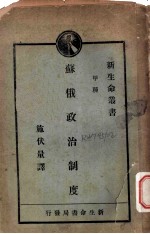 新生命叢書
甲種
蘇俄政治制度
施伏量譯
新生命書局發行